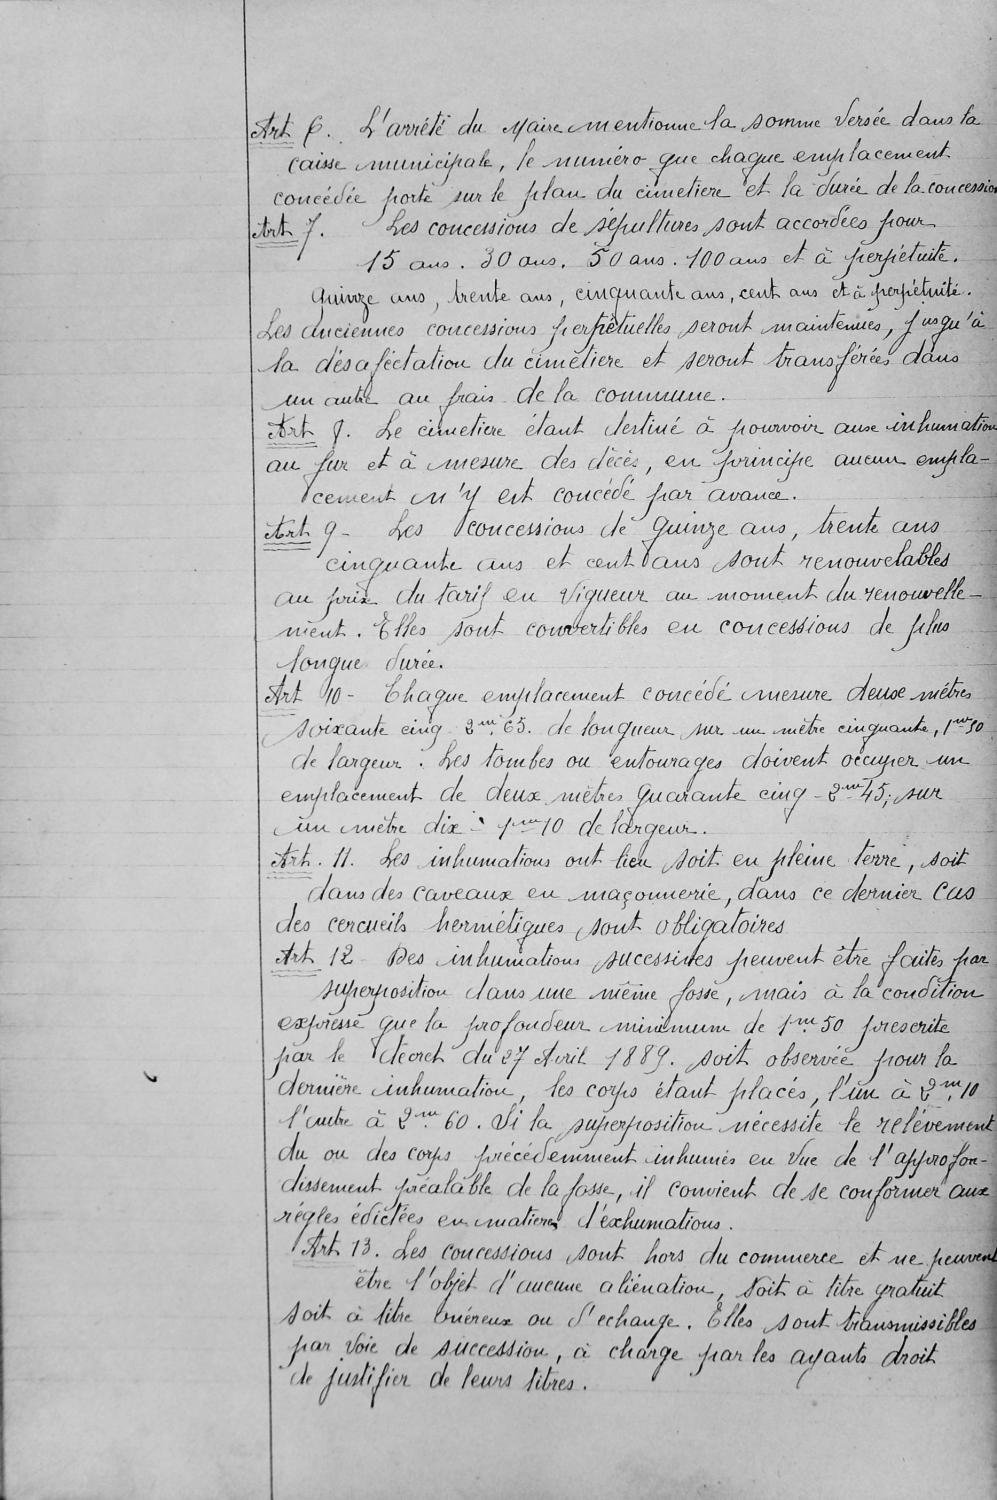 Art 6. L'arrêté du Maire mentionne la somme versée dans la
caisse municipale, le numéro que chaque emplacement
concédée porte sur le plan du cimetiere et la durée de la concession
Art 7. Les concessions de sépultures sont accordées pour
15 ans. 30 ans. 50 ans. 100 ans et à perpétuité.
Quinze ans, trente ans, cinquante ans, cent ans et à perpétuité.
Les anciennes concessions perpétuelles seront maintenues, jusqu'à
la désaféctation du cimetiere et seront transférées dans
un autre au frais de la commune.
Art 8. Le cimetiere étant destiné à pourvoir aux inhumation
au fur et à mesure des décès, en principe aucun empla-
cement n'y est concédé par avance.
Art 9 - Les concessions de quinze ans, trente ans
cinquante ans et cent ans sont renouvelables
au prix du tarif en vigueur au moment du renouvelle-
ment. Elles sont convertibles en concessions de plus
longue durée.
Art 10 - Chaque emplacement concédé mesure deux mètres
soixante cinq 2m 65. de longueur sur un mètre cinquante, 1m 50
de largeur. Les tombes ou entourages doivent occuper un
emplacement de deux mètres quarante cinq - 2m 45; sur
un mètre dix - 1m 10 de largeur.
Art. 11. Les inhumations ont lieu soit en pleine terre, soit
dans des caveaux en maçonnerie, dans ce dernier cas
des cercueils hermétiques sont obligatoires
Art 12 Des inhumations successives peuvent être faites par
superposition dans une même fosse, mais à la condition
expresse que la profondeur minimum de 1m. 50 prescrite
par le décret du 27 Avril 1889. soit observée pour la
dernière inhumation, les corps étant placés, l'un à 2m. 10
l'autre à 2m. 60. Si la superposition nécessite le relèvement
du ou des corps précédemment inhumés en vue de l'approfon-
dissement préalable de la fosse, il convient de se conformer aux
régles édictées en matiere d'exhumations.
Art 13. Les concessions sont hors du commerce et ne peuvent
être l'objet d'aucune aliénation, soit à titre gratuit
soit à titre onéreux ou d'echange. Elles sont transmissibles
par voie de succession, à charge par les ayants droit
de justifier de leurs titres.